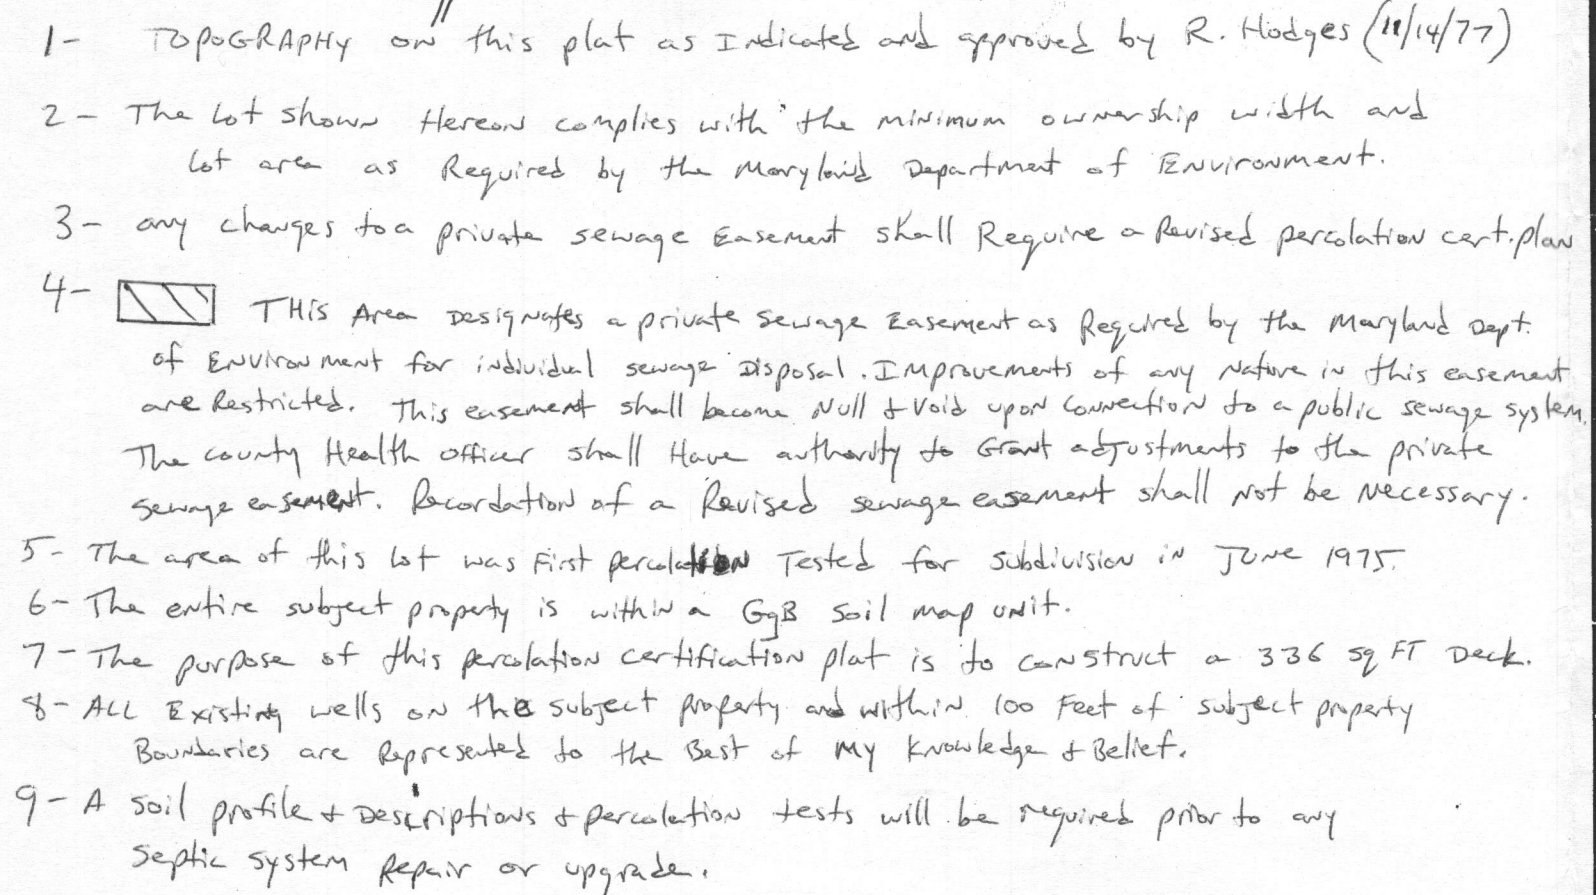 1- TOPOGRAPHY on this plat as Indicated and approved by R. Hodges (11/14/77)
2- The Lot shown Hereon complies with the minimum ownership width and
lot area as Required by the Maryland Department of Environment.
3- any changes to a private sewage Easement shall Require a Revised percolation cert. plan
4- THis Area Designates a private sewage Easement as Required by the Maryland Dept.
of Environment for individual sewage Disposal. Improvements of any Nature in this easement
are Restricted. This easement shall become Null + Void upon Connection to a public sewage system.
The county Health officer shall Have authority to Grant adjustments to the private
sewage easement. Recordation of a Revised sewage easement shall Not be Necessary.
5- The area of this Lot was First percolation Tested for subdivision in June 1975.
6- The entire subject property is within a GgB soil map unit.
7- The purpose of this percolation certification plat is to construct a 336 sq FT Deck.
8- ALL Existing wells on the subject property and within 100 Feet of subject property
Boundaries are Represented to the Best of My Knowledge + Belief.
9- A soil profile + Descriptions + percolation tests will be required prior to any
septic system Repair or upgrade.